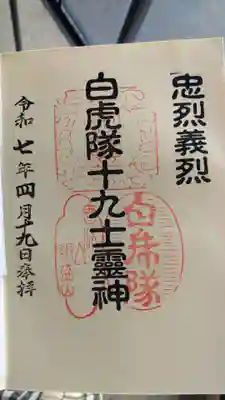 忠烈義烈
白虎隊十九士靈神
白虎隊
令和七年四月十九日奉拝